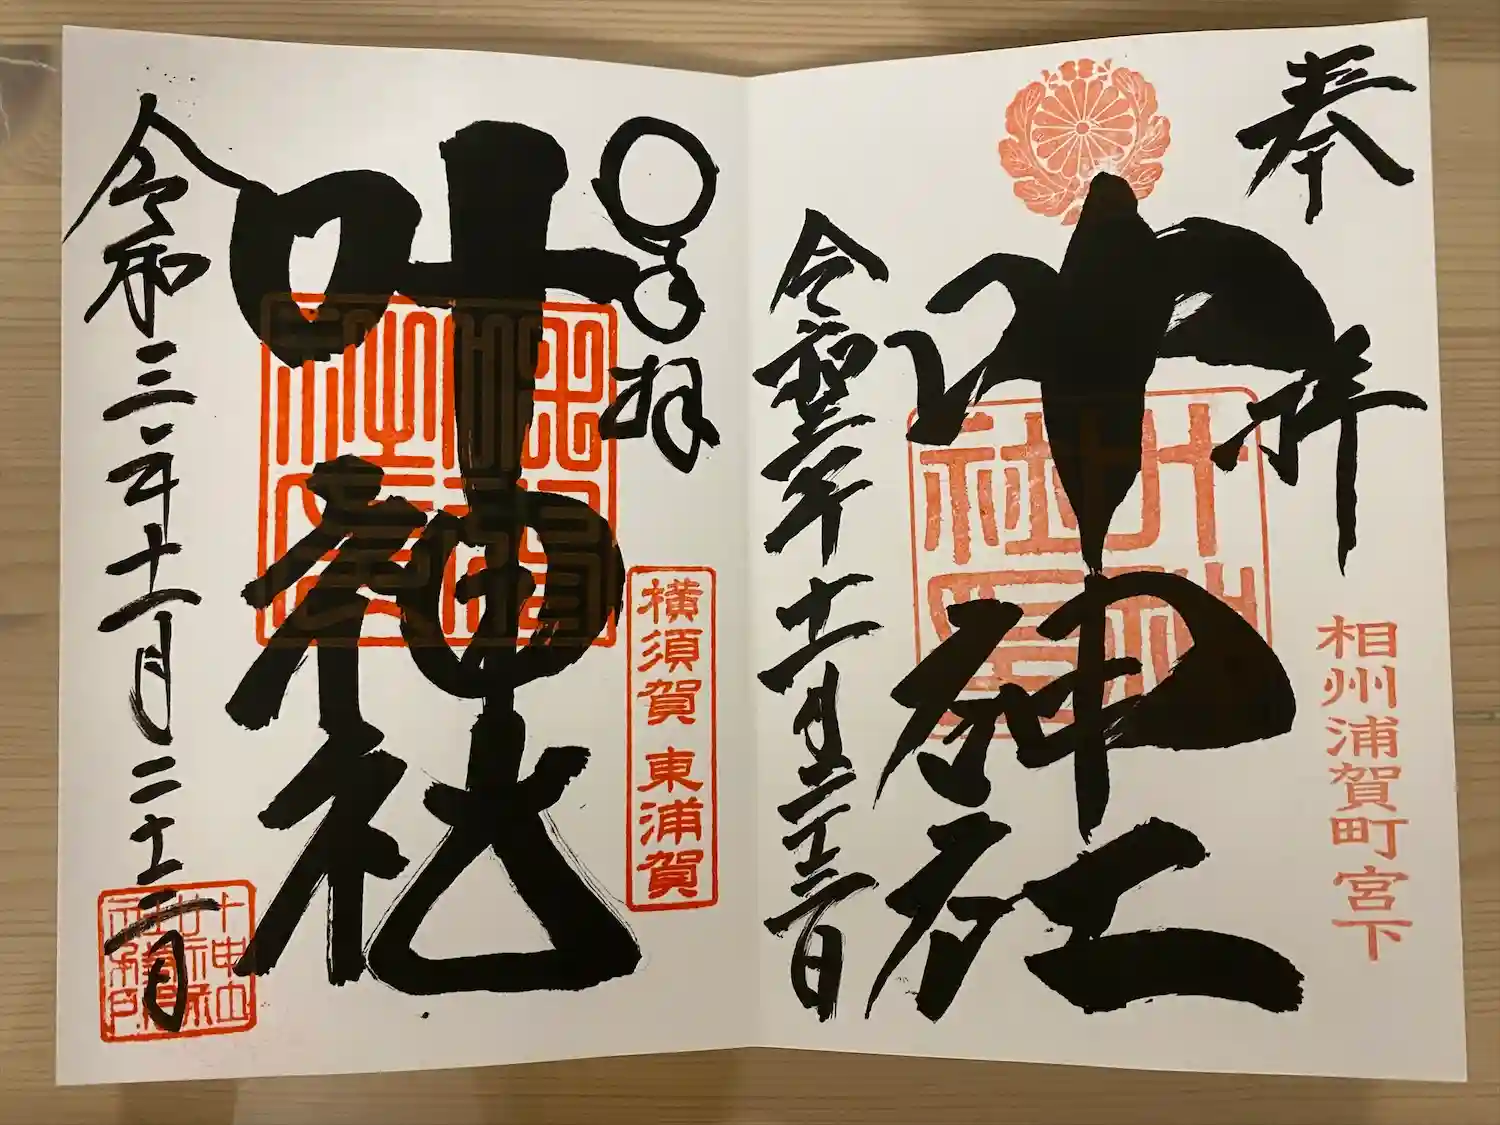 奉拝
相州浦賀町宮下
叶神社
令和三年十一月二十三日
奉拝
横須賀 東浦賀
叶神社
令和三年十一月二十三日